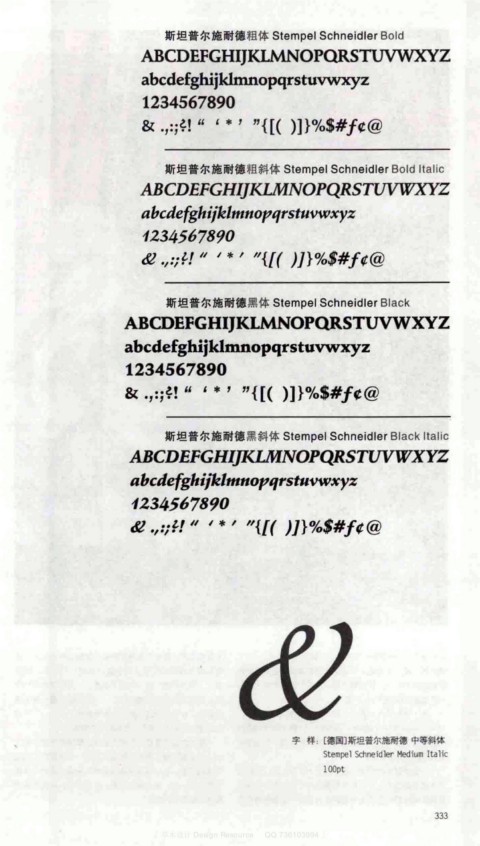 斯坦普尔施耐德粗体 Stempel Schneidler Bold
ABCDEFGHIJKLMNOPQRSTUVWXYZ
abcdefghijklmnopqrstuvwxyz
1234567890
& .,:;?! “ ‘ * ’ ”{[( )]}%$#ƒ¢@
斯坦普尔施耐德粗斜体 Stempel Schneidler Bold Italic
ABCDEFGHIJKLMNOPQRSTUVWXYZ
abcdefghijklmnopqrstuvwxyz
1234567890
& .,:;?! “ ‘ * ’ ”{[( )]}%$#ƒ¢@
斯坦普尔施耐德黑体 Stempel Schneidler Black
ABCDEFGHIJKLMNOPQRSTUVWXYZ
abcdefghijklmnopqrstuvwxyz
1234567890
& .,:;?! “ ‘ * ’ ”{[( )]}%$#ƒ¢@
斯坦普尔施耐德黑斜体 Stempel Schneidler Black Italic
ABCDEFGHIJKLMNOPQRSTUVWXYZ
abcdefghijklmnopqrstuvwxyz
1234567890
& .,:;?! “ ‘ * ’ ”{[( )]}%$#ƒ¢@
&
字 样: [德国]斯坦普尔施耐德 中等斜体
Stempel Schneidler Medium Italic
100pt
333
Design Resource